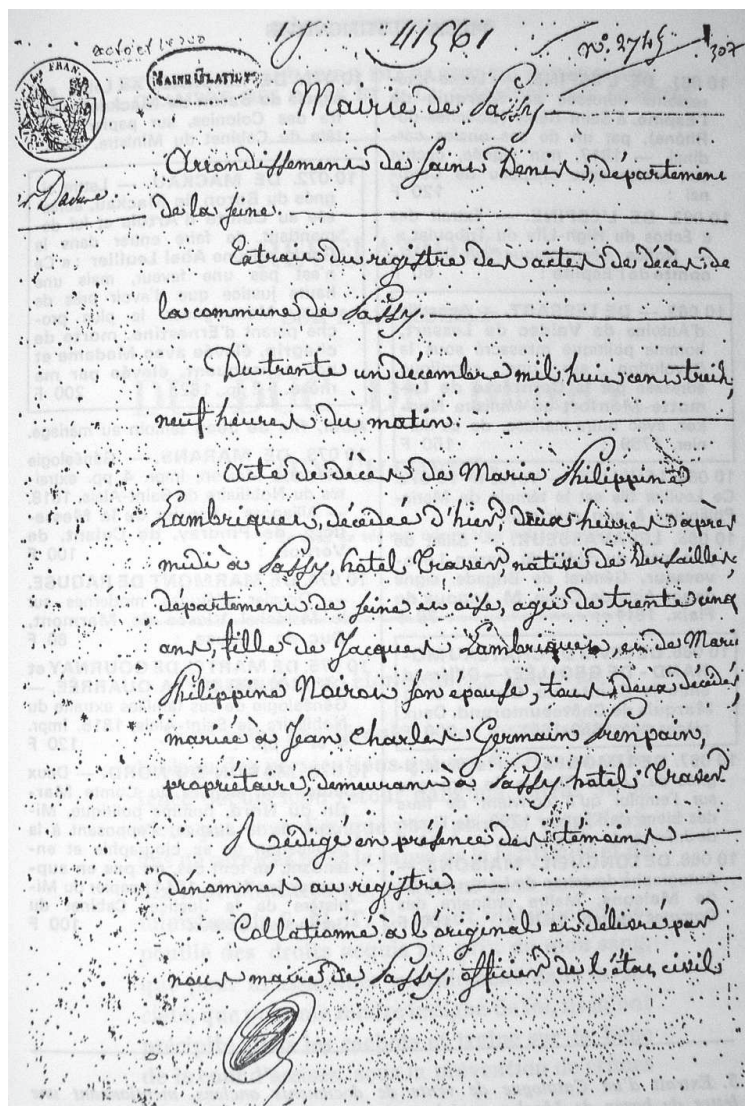 41561
n°. 2745
307
Mairie de Passy
Arrondissement de Saint Denis, département
de la Seine.
Extrait du registre des actes de décès de
la commune de Passy.
Du trente un décembre mil huit cent treize,
neuf heures du matin.
Acte de décès de Marie Philippine
Lambriquet, décédée d'hier, deux heures après
midi à Passy, hotel Traser, native de Versailles
département de Seine et oise, agée de trente cinq
ans, fille de Jacques Lambriquet, et de Marie
Philippine Noirot son épouse, tous deux décédés,
mariée à Jean Charles Germain Prempain,
propriétaire, demeurant à Passy hotel Traser.
Rédigé en présence des témoins
dénommés au registre.
Collationné à l'original et délivré par
nous maire de Passy, officier de l'état civil